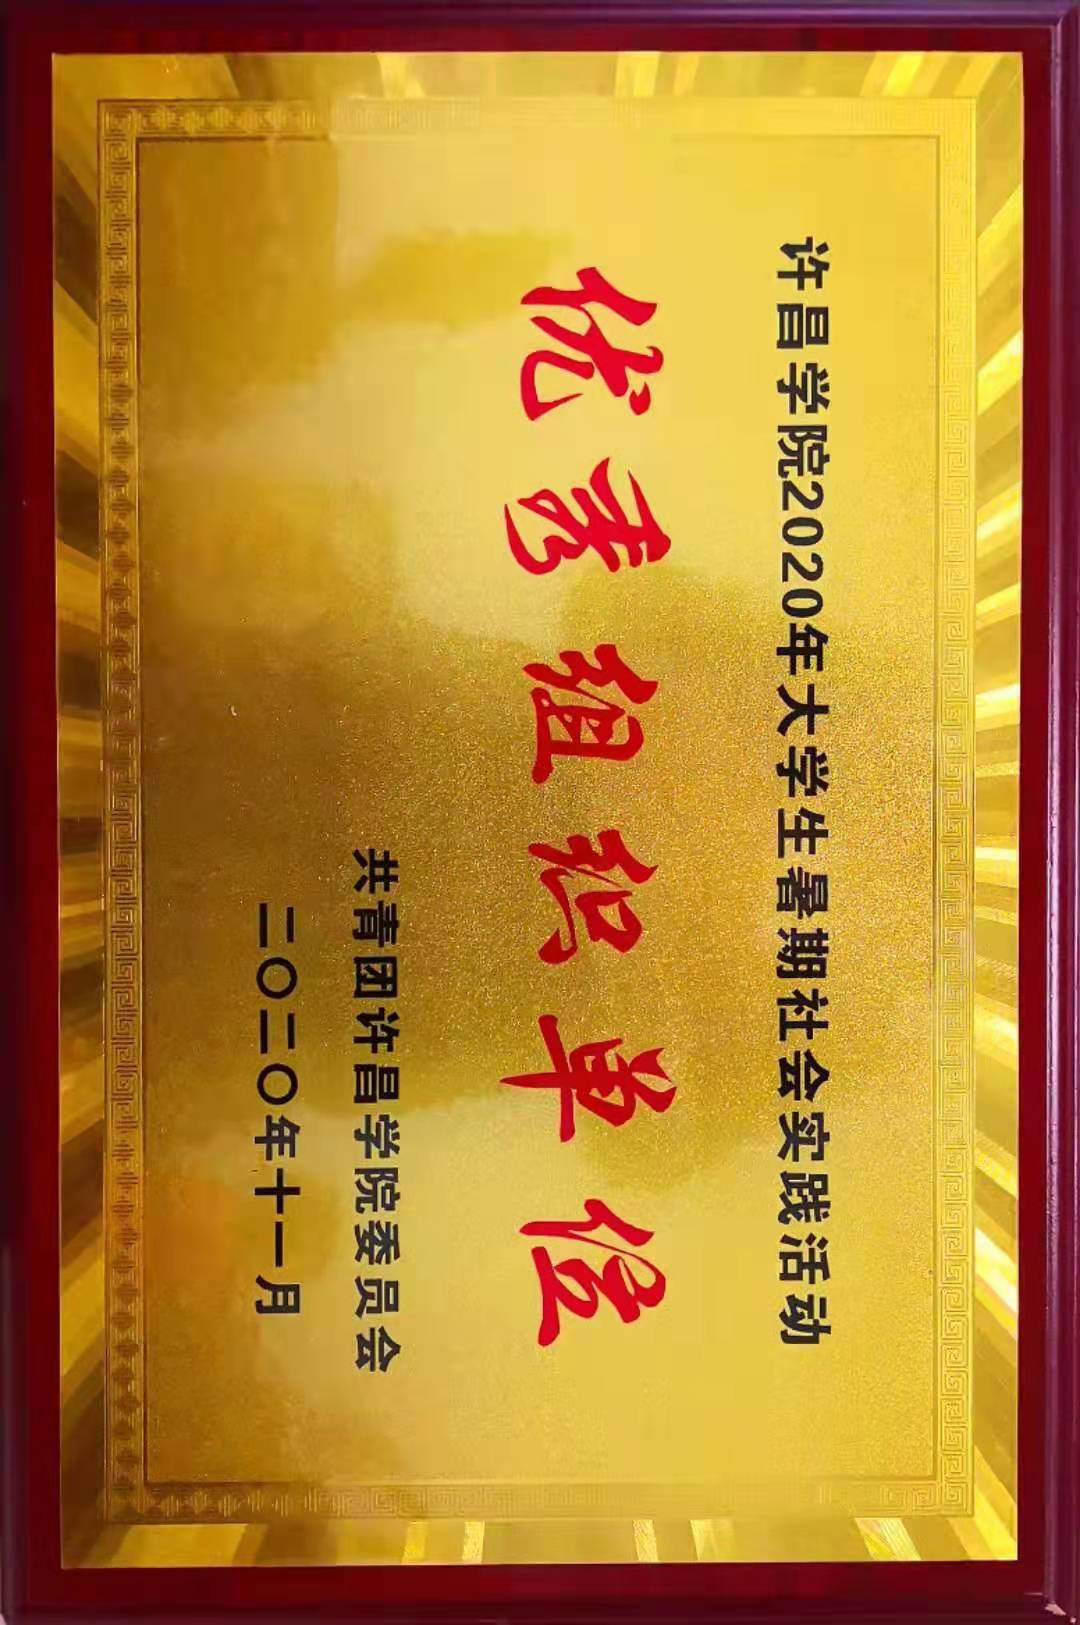 许昌学院2020年大学生暑期社会实践活动
优秀组织单位
共青团许昌学院委员会
二〇二〇年十一月